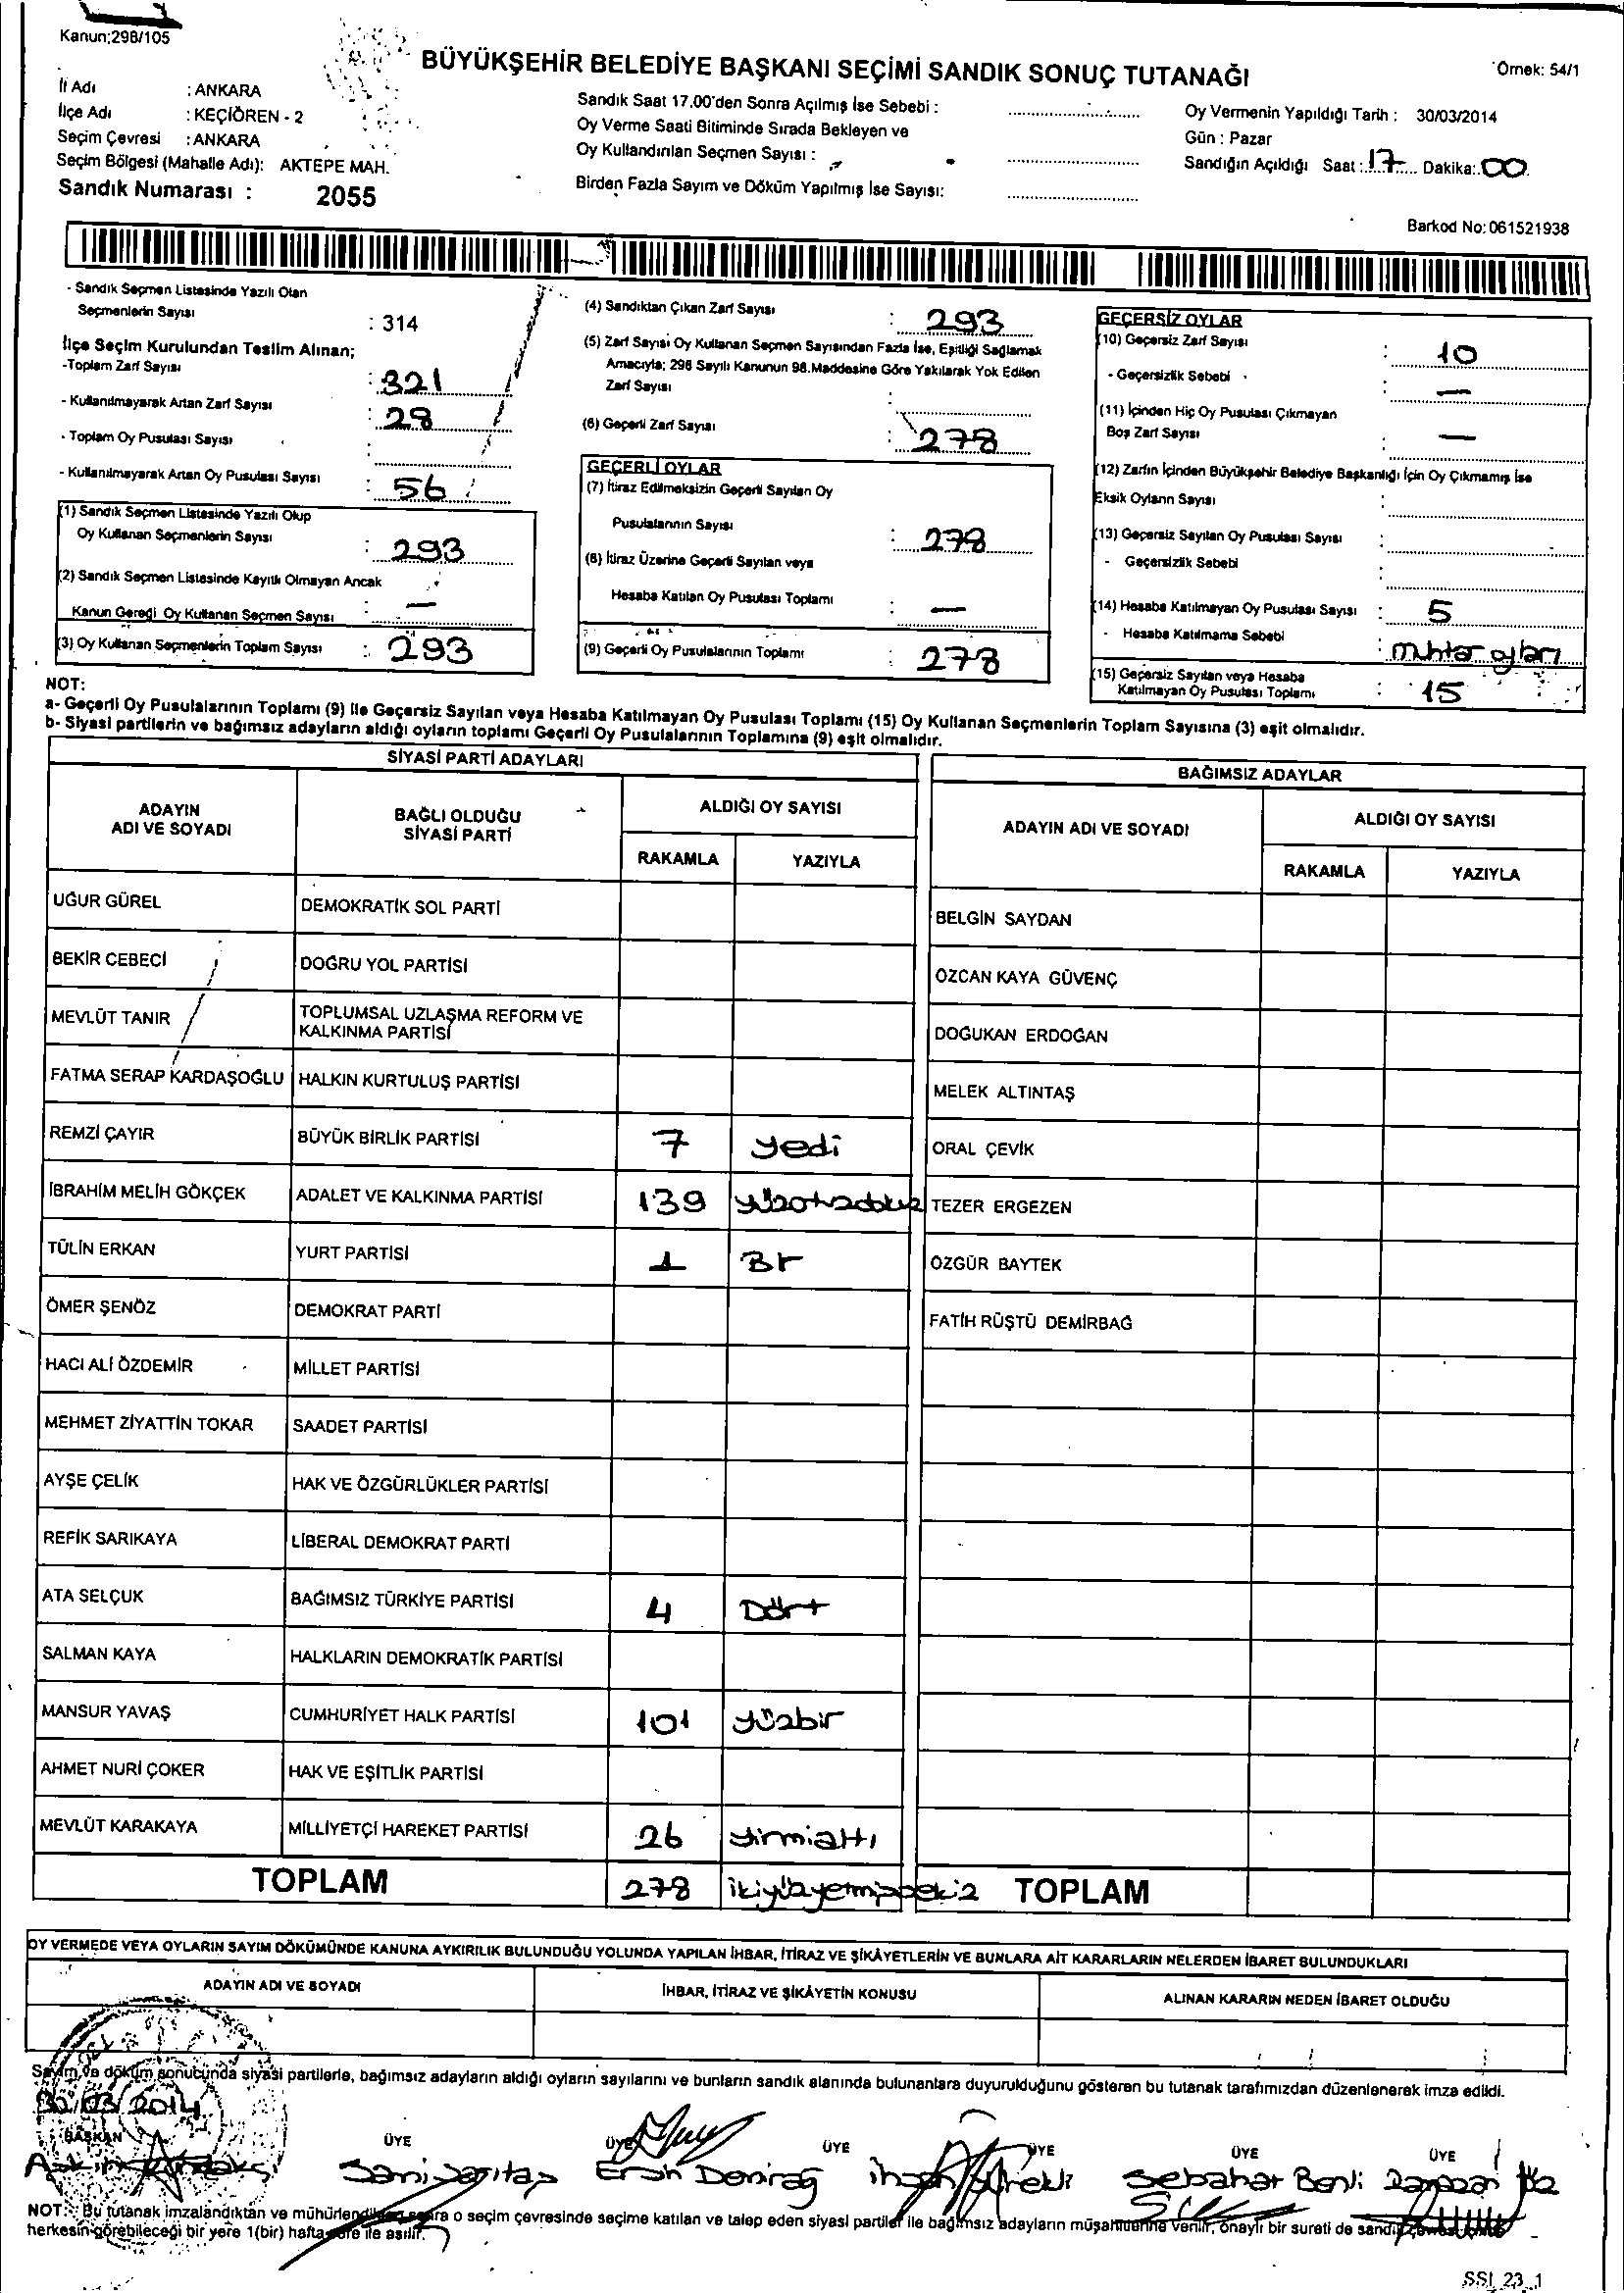 Kanun;298/105
BÜYÜKŞEHİR BELEDİYE BAŞKANI SEÇİMİ SANDIK SONUÇ TUTANAĞI
Örnek: 54/1
İl Adı : ANKARA
İlçe Adı : KEÇİÖREN - 2
Seçim Çevresi : ANKARA
Seçim Bölgesi (Mahalle Adı): AKTEPE MAH.
Sandık Numarası : 2055
Sandık Saat 17.00'den Sonra Açılmış İse Sebebi :
Oy Verme Saati Bitiminde Sırada Bekleyen ve
Oy Kullandırılan Seçmen Sayısı :
Birden Fazla Sayım ve Döküm Yapılmış İse Sayısı:
Oy Vermenin Yapıldığı Tarih : 30/03/2014
Gün : Pazar
Sandığın Açıldığı Saat : 17 Dakika: 00
Barkod No: 061521938
- Sandık Seçmen Listesinde Yazılı Olan
Seçmenlerin Sayısı : 314
İlçe Seçim Kurulundan Teslim Alınan;
-Toplam Zarf Sayısı : 321
- Kullanılmayarak Artan Zarf Sayısı : 28
- Toplam Oy Pusulası Sayısı :
- Kullanılmayarak Artan Oy Pusulası Sayısı : 56
(1) Sandık Seçmen Listesinde Yazılı Olup
Oy Kullanan Seçmenlerin Sayısı : 293
(2) Sandık Seçmen Listesinde Kayıtlı Olmayan Ancak
Kanun Gereği Oy Kullanan Seçmen Sayısı : —
(3) Oy Kullanan Seçmenlerin Toplam Sayısı : 293
(4) Sandıktan Çıkan Zarf Sayısı : 293
(5) Zarf Sayısı Oy Kullanan Seçmen Sayısından Fazla İse, Eşitliği Sağlamak
Amacıyla; 298 Sayılı Kanunun 98.Maddesine Göre Yakılarak Yok Edilen
Zarf Sayısı :
(6) Geçerli Zarf Sayısı : 278
GEÇERLİ OYLAR
(7) İtiraz Edilmeksizin Geçerli Sayılan Oy
Pusulalarının Sayısı : 278
(8) İtiraz Üzerine Geçerli Sayılan veya
Hesaba Katılan Oy Pusulası Toplamı : —
(9) Geçerli Oy Pusulalarının Toplamı : 278
GEÇERSİZ OYLAR
(10) Geçersiz Zarf Sayısı : 10
- Geçersizlik Sebebi : —
(11) İçinden Hiç Oy Pusulası Çıkmayan
Boş Zarf Sayısı : —
(12) Zarfın İçinden Büyükşehir Belediye Başkanlığı İçin Oy Çıkmamış İse
Eksik Oyların Sayısı :
(13) Geçersiz Sayılan Oy Pusulası Sayısı :
- Geçersizlik Sebebi :
(14) Hesaba Katılmayan Oy Pusulası Sayısı : 5
- Hesaba Katılmama Sebebi : muhtar oyları
(15) Geçersiz Sayılan veya Hesaba
Katılmayan Oy Pusulası Toplamı : 15
NOT:
a- Geçerli Oy Pusulalarının Toplamı (9) İle Geçersiz Sayılan veya Hesaba Katılmayan Oy Pusulası Toplamı (15) Oy Kullanan Seçmenlerin Toplam Sayısına (3) eşit olmalıdır.
b- Siyasi partilerin ve bağımsız adayların aldığı oyların toplamı Geçerli Oy Pusulalarının Toplamına (9) eşit olmalıdır.
SİYASİ PARTİ ADAYLARI
ADAYIN ADI VE SOYADI
BAĞLI OLDUĞU SİYASİ PARTİ
ALDIĞI OY SAYISI
RAKAMLA YAZIYLA
UĞUR GÜREL DEMOKRATİK SOL PARTİ
BEKİR CEBECİ DOĞRU YOL PARTİSİ
MEVLÜT TANIR TOPLUMSAL UZLAŞMA REFORM VE
KALKINMA PARTİSİ
FATMA SERAP KARDAŞOĞLU HALKIN KURTULUŞ PARTİSİ
REMZİ ÇAYIR BÜYÜK BİRLİK PARTİSİ 7 yedi
İBRAHİM MELİH GÖKÇEK ADALET VE KALKINMA PARTİSİ 139
TÜLİN ERKAN YURT PARTİSİ 1 Bir
ÖMER ŞENÖZ DEMOKRAT PARTİ
HACI ALİ ÖZDEMİR MİLLET PARTİSİ
MEHMET ZİYATTİN TOKAR SAADET PARTİSİ
AYŞE ÇELİK HAK VE ÖZGÜRLÜKLER PARTİSİ
REFİK SARIKAYA LİBERAL DEMOKRAT PARTİ
ATA SELÇUK BAĞIMSIZ TÜRKİYE PARTİSİ 4 Dört
SALMAN KAYA HALKLARIN DEMOKRATİK PARTİSİ
MANSUR YAVAŞ CUMHURİYET HALK PARTİSİ 101 yüzbir
AHMET NURİ ÇOKER HAK VE EŞİTLİK PARTİSİ
MEVLÜT KARAKAYA MİLLİYETÇİ HAREKET PARTİSİ 26 yirmialtı
TOPLAM 278 ikiyüzyetmişsekiz
BAĞIMSIZ ADAYLAR
ADAYIN ADI VE SOYADI
ALDIĞI OY SAYISI
RAKAMLA YAZIYLA
BELGİN SAYDAN
ÖZCAN KAYA GÜVENÇ
DOĞUKAN ERDOĞAN
MELEK ALTINTAŞ
ORAL ÇEVİK
TEZER ERGEZEN
ÖZGÜR BAYTEK
FATİH RÜŞTÜ DEMİRBAĞ
TOPLAM
OY VERMEDE VEYA OYLARIN SAYIM DÖKÜMÜNDE KANUNA AYKIRILIK BULUNDUĞU YOLUNDA YAPILAN İHBAR, İTİRAZ VE ŞİKÂYETLERİN VE BUNLARA AİT KARARLARIN NELERDEN İBARET BULUNDUKLARI
ADAYIN ADI VE SOYADI İHBAR, İTİRAZ VE ŞİKÂYETİN KONUSU ALINAN KARARIN NEDEN İBARET OLDUĞU
Sayım ve döküm sonucunda siyasi partilerle, bağımsız adayların aldığı oyların sayılarını ve bunların sandık alanında bulunanlara duyurulduğunu gösteren bu tutanak tarafımızdan düzenlenerek imza edildi.
30/03/2014
BAŞKAN ÜYE ÜYE ÜYE ÜYE ÜYE ÜYE
Ersin Demirağ Sebahat Benli
NOT: Bu tutanak imzalandıktan ve mühürlendikten sonra o seçim çevresinde seçime katılan ve talep eden siyasi partiler ile bağımsız adayların müşahitlerine verilir, onaylı bir sureti de sandık
herkesin görebileceği bir yere 1(bir) hafta süre ile asılır.
SSI_23_1